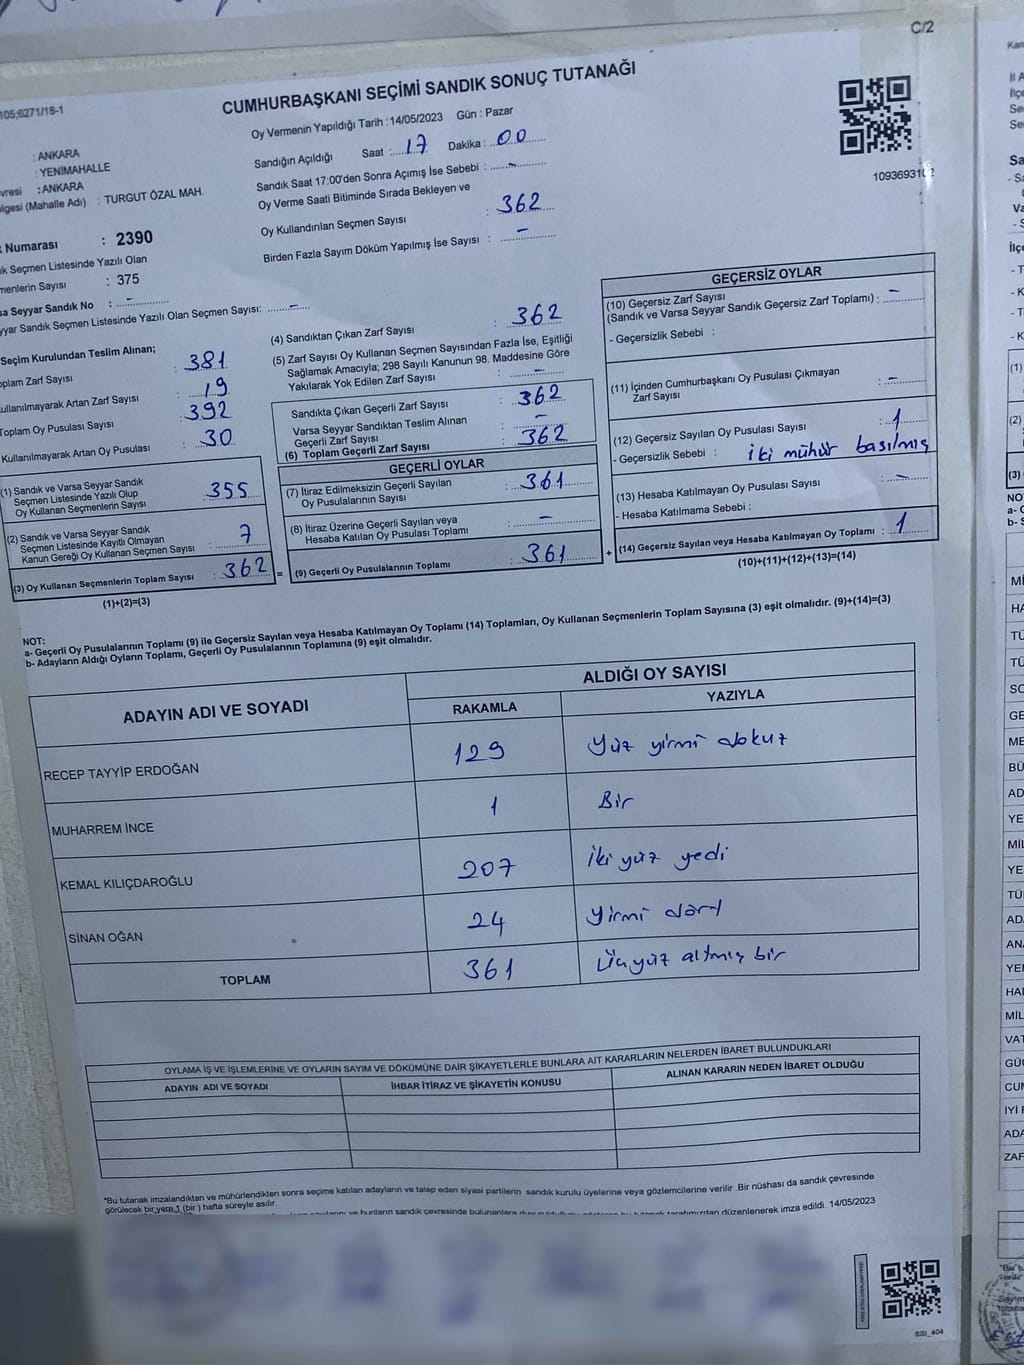 C/2
105;6271/18-1
CUMHURBAŞKANI SEÇİMİ SANDIK SONUÇ TUTANAĞI
Oy Vermenin Yapıldığı Tarih :14/05/2023 Gün : Pazar
: ANKARA
: YENİMAHALLE
: ANKARA
(Mahalle Adı) : TURGUT ÖZAL MAH.
Sandığın Açıldığı Saat : 17 Dakika : 00
Sandık Saat 17:00'den Sonra Açımış İse Sebebi : -
Oy Verme Saati Bitiminde Sırada Bekleyen ve
Oy Kullandırılan Seçmen Sayısı : 362
Birden Fazla Sayım Döküm Yapılmış İse Sayısı : -
Numarası : 2390
Seçmen Listesinde Yazılı Olan
Sayısı : 375
Seyyar Sandık No : -
Sandık Seçmen Listesinde Yazılı Olan Seçmen Sayısı: -
Seçim Kurulundan Teslim Alınan;
Zarf Sayısı : 381
Artan Zarf Sayısı : 19
Toplam Oy Pusulası Sayısı : 392
Kullanılmayarak Artan Oy Pusulası : 30
(1) Sandık ve Varsa Seyyar Sandık
Seçmen Listesinde Yazılı Olup
Oy Kullanan Seçmenlerin Sayısı : 355
(2) Sandık ve Varsa Seyyar Sandık
Seçmen Listesinde Kayıtlı Olmayan
Kanun Gereği Oy Kullanan Seçmen Sayısı : 7
(3) Oy Kullanan Seçmenlerin Toplam Sayısı : 362
(1)+(2)=(3)
(4) Sandıktan Çıkan Zarf Sayısı : 362
(5) Zarf Sayısı Oy Kullanan Seçmen Sayısından Fazla İse, Eşitliği
Sağlamak Amacıyla; 298 Sayılı Kanunun 98. Maddesine Göre
Yakılarak Yok Edilen Zarf Sayısı : -
Sandıkta Çıkan Geçerli Zarf Sayısı : 362
Varsa Seyyar Sandıktan Teslim Alınan
Geçerli Zarf Sayısı : -
(6) Toplam Geçerli Zarf Sayısı : 362
GEÇERLİ OYLAR
(7) İtiraz Edilmeksizin Geçerli Sayılan
Oy Pusulalarının Sayısı : 361
(8) İtiraz Üzerine Geçerli Sayılan veya
Hesaba Katılan Oy Pusulası Toplamı : -
= (9) Geçerli Oy Pusulalarının Toplamı : 361 +
1093693102
GEÇERSİZ OYLAR
(10) Geçersiz Zarf Sayısı
(Sandık ve Varsa Seyyar Sandık Geçersiz Zarf Toplamı) : -
- Geçersizlik Sebebi :
(11) İçinden Cumhurbaşkanı Oy Pusulası Çıkmayan
Zarf Sayısı : -
(12) Geçersiz Sayılan Oy Pusulası Sayısı : 1
- Geçersizlik Sebebi : iki mühür basılmış
(13) Hesaba Katılmayan Oy Pusulası Sayısı : -
- Hesaba Katılmama Sebebi :
(14) Geçersiz Sayılan veya Hesaba Katılmayan Oy Toplamı : 1
(10)+(11)+(12)+(13)=(14)
NOT:
a- Geçerli Oy Pusulalarının Toplamı (9) ile Geçersiz Sayılan veya Hesaba Katılmayan Oy Toplamı (14) Toplamları, Oy Kullanan Seçmenlerin Toplam Sayısına (3) eşit olmalıdır. (9)+(14)=(3)
b- Adayların Aldığı Oyların Toplamı, Geçerli Oy Pusulalarının Toplamına (9) eşit olmalıdır.
ADAYIN ADI VE SOYADI
ALDIĞI OY SAYISI
RAKAMLA YAZIYLA
RECEP TAYYİP ERDOĞAN 129 Yüz yirmi dokuz
MUHARREM İNCE 1 Bir
KEMAL KILIÇDAROĞLU 207 İki yüz yedi
SİNAN OĞAN 24 Yirmi dört
TOPLAM 361 Üçyüz altmış bir
OYLAMA İŞ VE İŞLEMLERİNE VE OYLARIN SAYIM VE DÖKÜMÜNE DAİR ŞİKAYETLERLE BUNLARA AİT KARARLARIN NELERDEN İBARET BULUNDUKLARI
ADAYIN ADI VE SOYADI İHBAR İTİRAZ VE ŞİKAYETİN KONUSU ALINAN KARARIN NEDEN İBARET OLDUĞU
*Bu tutanak imzalandıktan ve mühürlendikten sonra seçime katılan adayların ve talep eden siyasi partilerin sandık kurulu üyelerine veya gözlemcilerine verilir .Bir nüshası da sandık çevresinde
görülecek bir yere 1 (bir ) hafta süreyle asılır.
düzenlenerek imza edildi. 14/05/2023
SSI_404